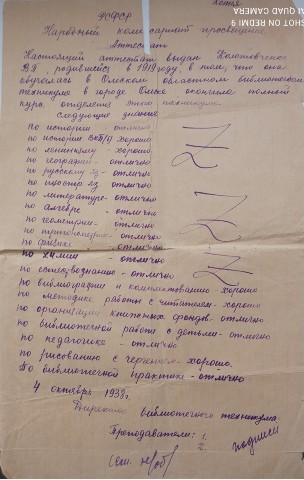 Копия
РСФСР
Народный комиссариат просвещения
Аттестат
Настоящий аттестат выдан
В.Я, родившейся в 1919 году, в том, что она
обучалась в Омском областном библиотечном
техникуме в городе Омске окончила полный
курс отделения этого техникума
Следующие знания
по истории - отлично
по истории ВКП(б) хорошо
по ленинизму - хорошо
по географии - отлично
по русскому яз - отлично
по иностр яз отлично
по литературе - отлично
по алгебре - отлично
по геометрии - отлично
по тригонометрии - отлично
по физике - отлично
по химии - отлично
по естествознанию - отлично
по библиографии и комплектованию - хорошо
по методике работы с читателем - хорошо
по организации книжных фондов - отлично
по библиотечной работе с детьми - отлично
по педагогике - отлично
по рисованию с черчением - хорошо.
По библиотечной практике - отлично
4 октября 1938 г.
Директор библиотечного техникума
Преподаватели: 1.
2.
подписи
ON REDMI 9
QUAD CAMERA